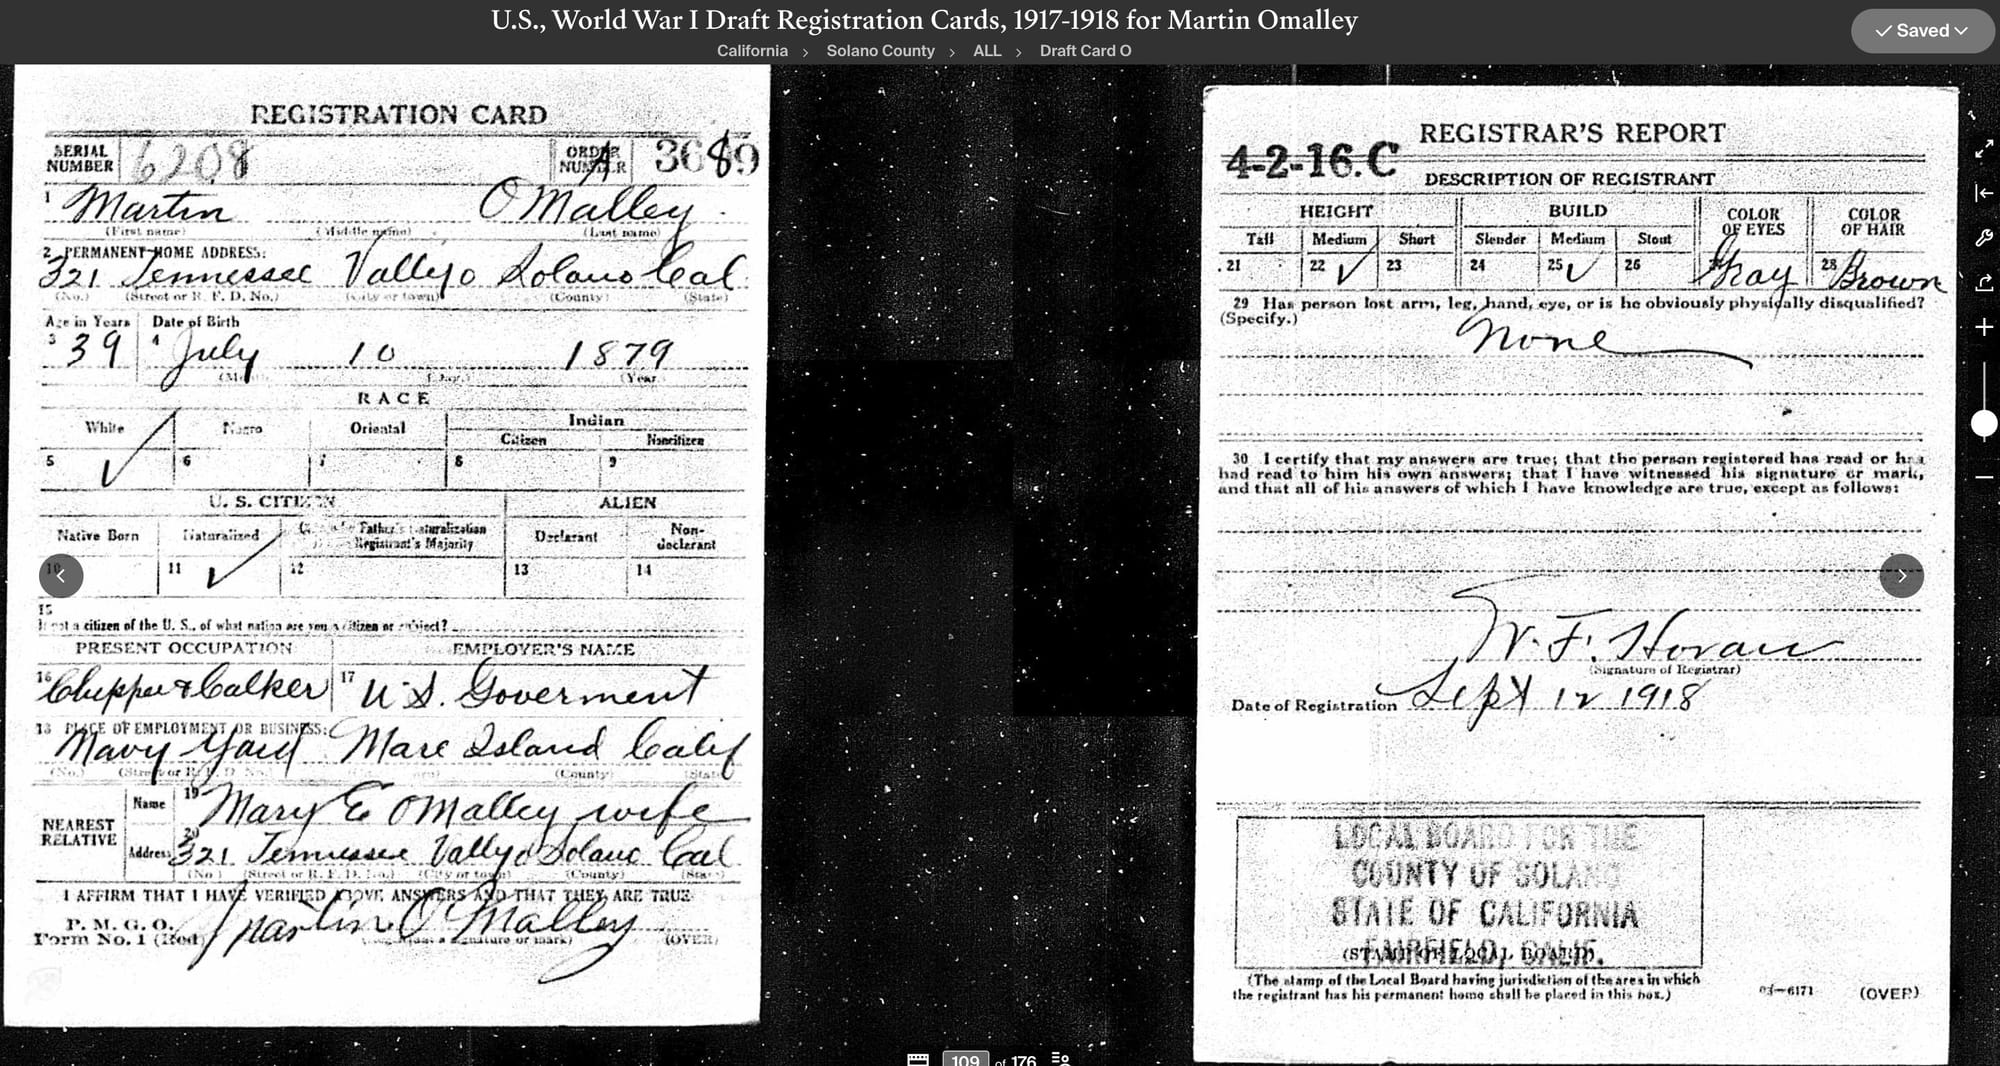 U.S., World War I Draft Registration Cards, 1917-1918 for Martin Omalley
California > Solano County > ALL > Draft Card O
Saved
REGISTRATION CARD
SERIAL NUMBER 6208 ORDER NUMBER A 3689
1 Martin OMalley
(First name) (Middle name) (Last name)
2 PERMANENT HOME ADDRESS:
321 Tennessee Vallejo Solano Cal.
(No.) (Street or R. F. D. No.) (City or town) (County) (State)
Age in Years Date of Birth
3 39 4 July 10 1879
(Month) (Day) (Year)
RACE
White Negro Oriental Indian
Citizen Noncitizen
5 ✓ 6 7 8 9
U. S. CITIZEN ALIEN
Native Born Naturalized Father's Naturalization Registrant's Majority Declarant Non-declarant
10 11 ✓ 12 13 14
15
If not a citizen of the U. S., of what nation are you a citizen or subject?
PRESENT OCCUPATION EMPLOYER'S NAME
16 Chipper & Calker 17 U.S. Goverment
18 PLACE OF EMPLOYMENT OR BUSINESS:
Navy Yard Mare Island Calif
(No.) (Street or R. F. D. No.) (County) (State)
NEAREST RELATIVE
Name 19 Mary E OMalley wife
Address 20 321 Tennessee Vallejo Solano Cal
(No.) (Street or R. F. D. No.) (City or town) (County) (State)
I AFFIRM THAT I HAVE VERIFIED ABOVE ANSWERS AND THAT THEY ARE TRUE
P. M. G. O.
Form No. 1 (Red) Martin O'Malley
(Registrant's signature or mark) (OVER)
REGISTRAR'S REPORT
4-2-16.C
DESCRIPTION OF REGISTRANT
HEIGHT BUILD COLOR OF EYES COLOR OF HAIR
Tall Medium Short Slender Medium Stout
21 22 ✓ 23 24 25 ✓ 26 Gray 28 Brown
29 Has person lost arm, leg, hand, eye, or is he obviously physically disqualified?
(Specify.)
None
30 I certify that my answers are true; that the person registered has read or has
had read to him his own answers; that I have witnessed his signature or mark,
and that all of his answers of which I have knowledge are true, except as follows:
W. F. Horan
(Signature of Registrar)
Date of Registration Sept 12 1918
LOCAL BOARD FOR THE
COUNTY OF SOLANO
STATE OF CALIFORNIA
FAIRFIELD, CALIF.
(STAMP OF LOCAL BOARD)
(The stamp of the Local Board having jurisdiction of the area in which
the registrant has his permanent home shall be placed in this box.)
03—6171 (OVER)
109 of 176